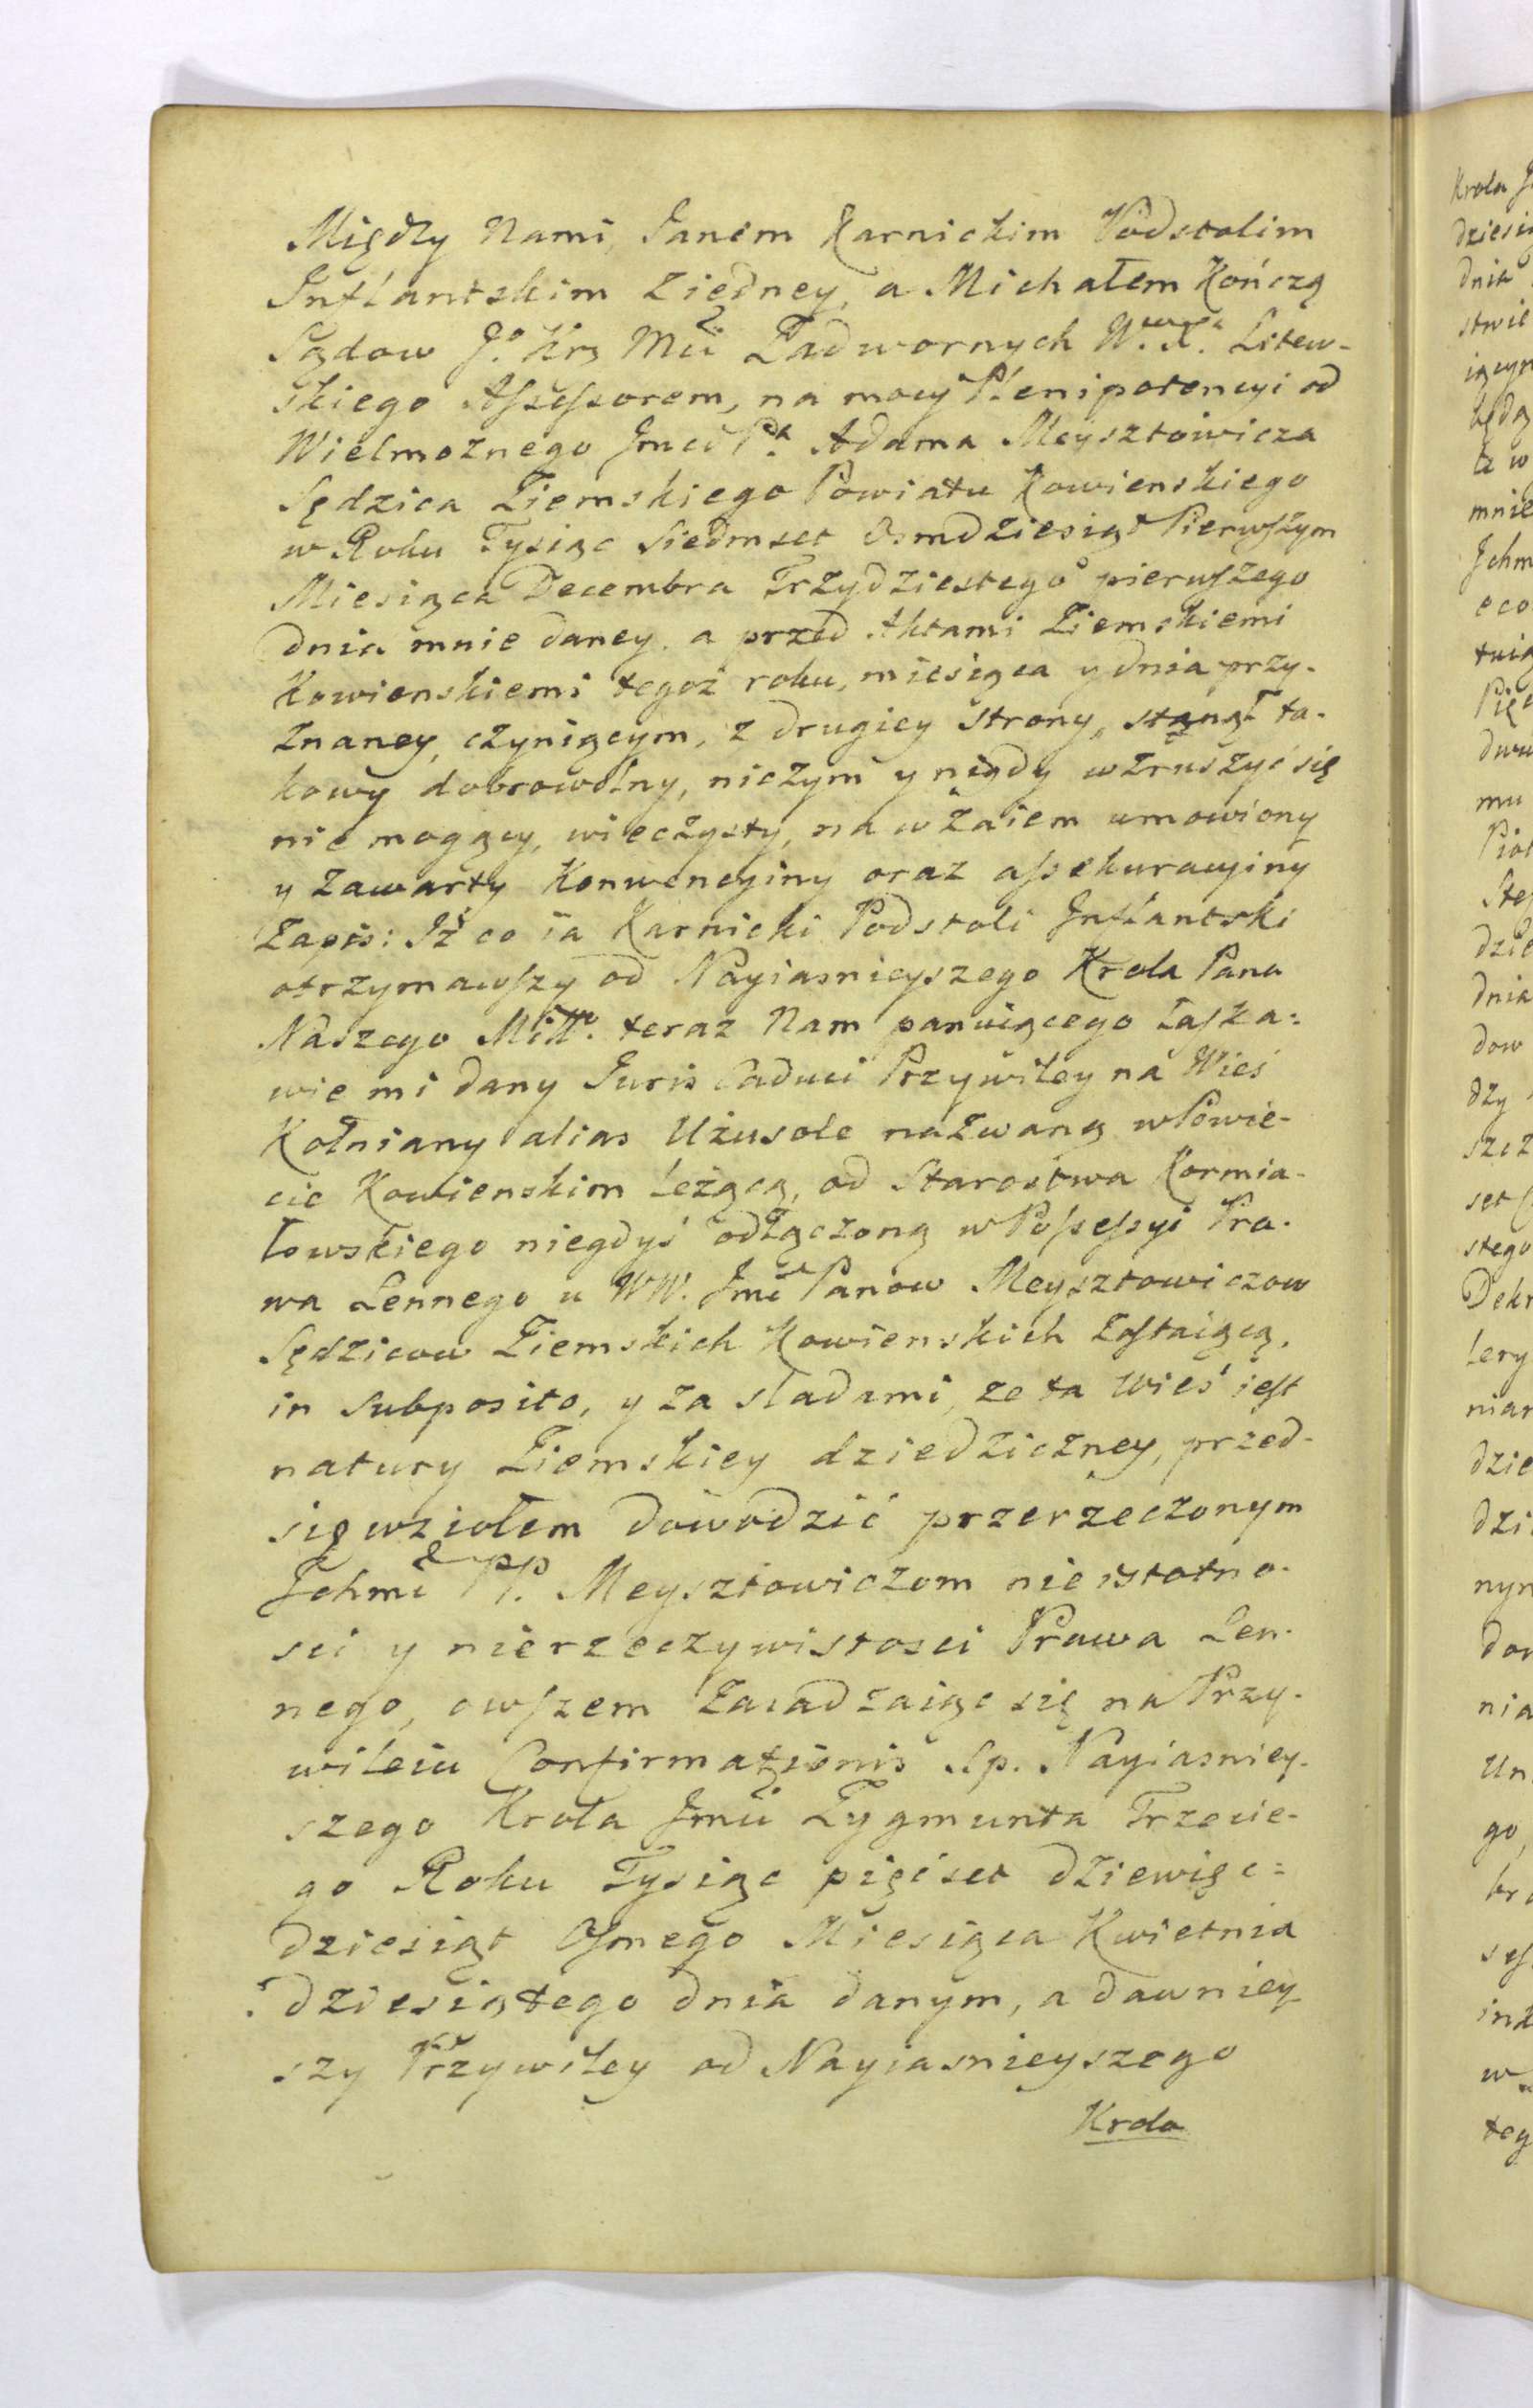 Między Nami, Janem Karnickim Podstolim
Inflantskim z iedney, a Michałem Kończą
Sądow J.o Krq Mci Zadwornych W.o X.a Litew-
skiego Assessorem, na mocy Plenipotencyi od
Wielmożnego Jmci P.a Adama Meysztowicza
Sędzica Ziemskiego Powiatu Kowienskiego
w Roku Tysiąc Siedmset Osmdziesiąt Pierwszym
Miesiąca Decembra Trzydziestego pierwszego
dnia mnie daney, a przed Aktami Ziemskiemi
Kowienskiemi tegoż roku, miesiąca y dnia przy-
znaney, czyniącym, z drugiey strony, stanął ta-
kowy dobrowolny, niczym y nigdy wzruszyć się
nie mogący, wieczysty, na wzaiem umowiony
y zawarty Konwencyiny oraz assekuracyiny
Zapis: Iż co ia Karnicki Podstoli Inflantski
otrzymawszy od Nayiasnieyszego Krola Pana
Naszego Miłł.o teraz Nam panuiącego łaska=
wie mi dany Juris Caduci Przywiley na Wieś
Kołniany alias Użusole nazwaną w Powie-
cie Kowienskim leżącą, od Starostwa Kormia-
łowskiego niegdyś odłączoną w Possessyi Pra-
wa Lennego u WW. Jmć Panow Meysztowiczow
Sędzicow Ziemskich Kowienskich zostaiącą,
in Subposito, y za sladami, ze ta Wieś iest
natury Ziemskiey dziedziczney, przed-
sięwziołem dowodzić przerzeczonym
Ichmć PP. Meysztowiczom nieistotno-
sci y nierzeczywistosci Prawa Len-
nego, owszem zasadzaiąc się na Przy-
wileiu Confirmationis Sp. Nayiasniey-
szego Krola Jmci Zygmunta Trzecie-
go Roku Tysiąc pięćset dziewięć=
dziesiąt Osmego Miesiąca Kwietnia
dziesiątego dnia danym, a dawniey
szy Przywiley od Nayiasnieyszego
Krola